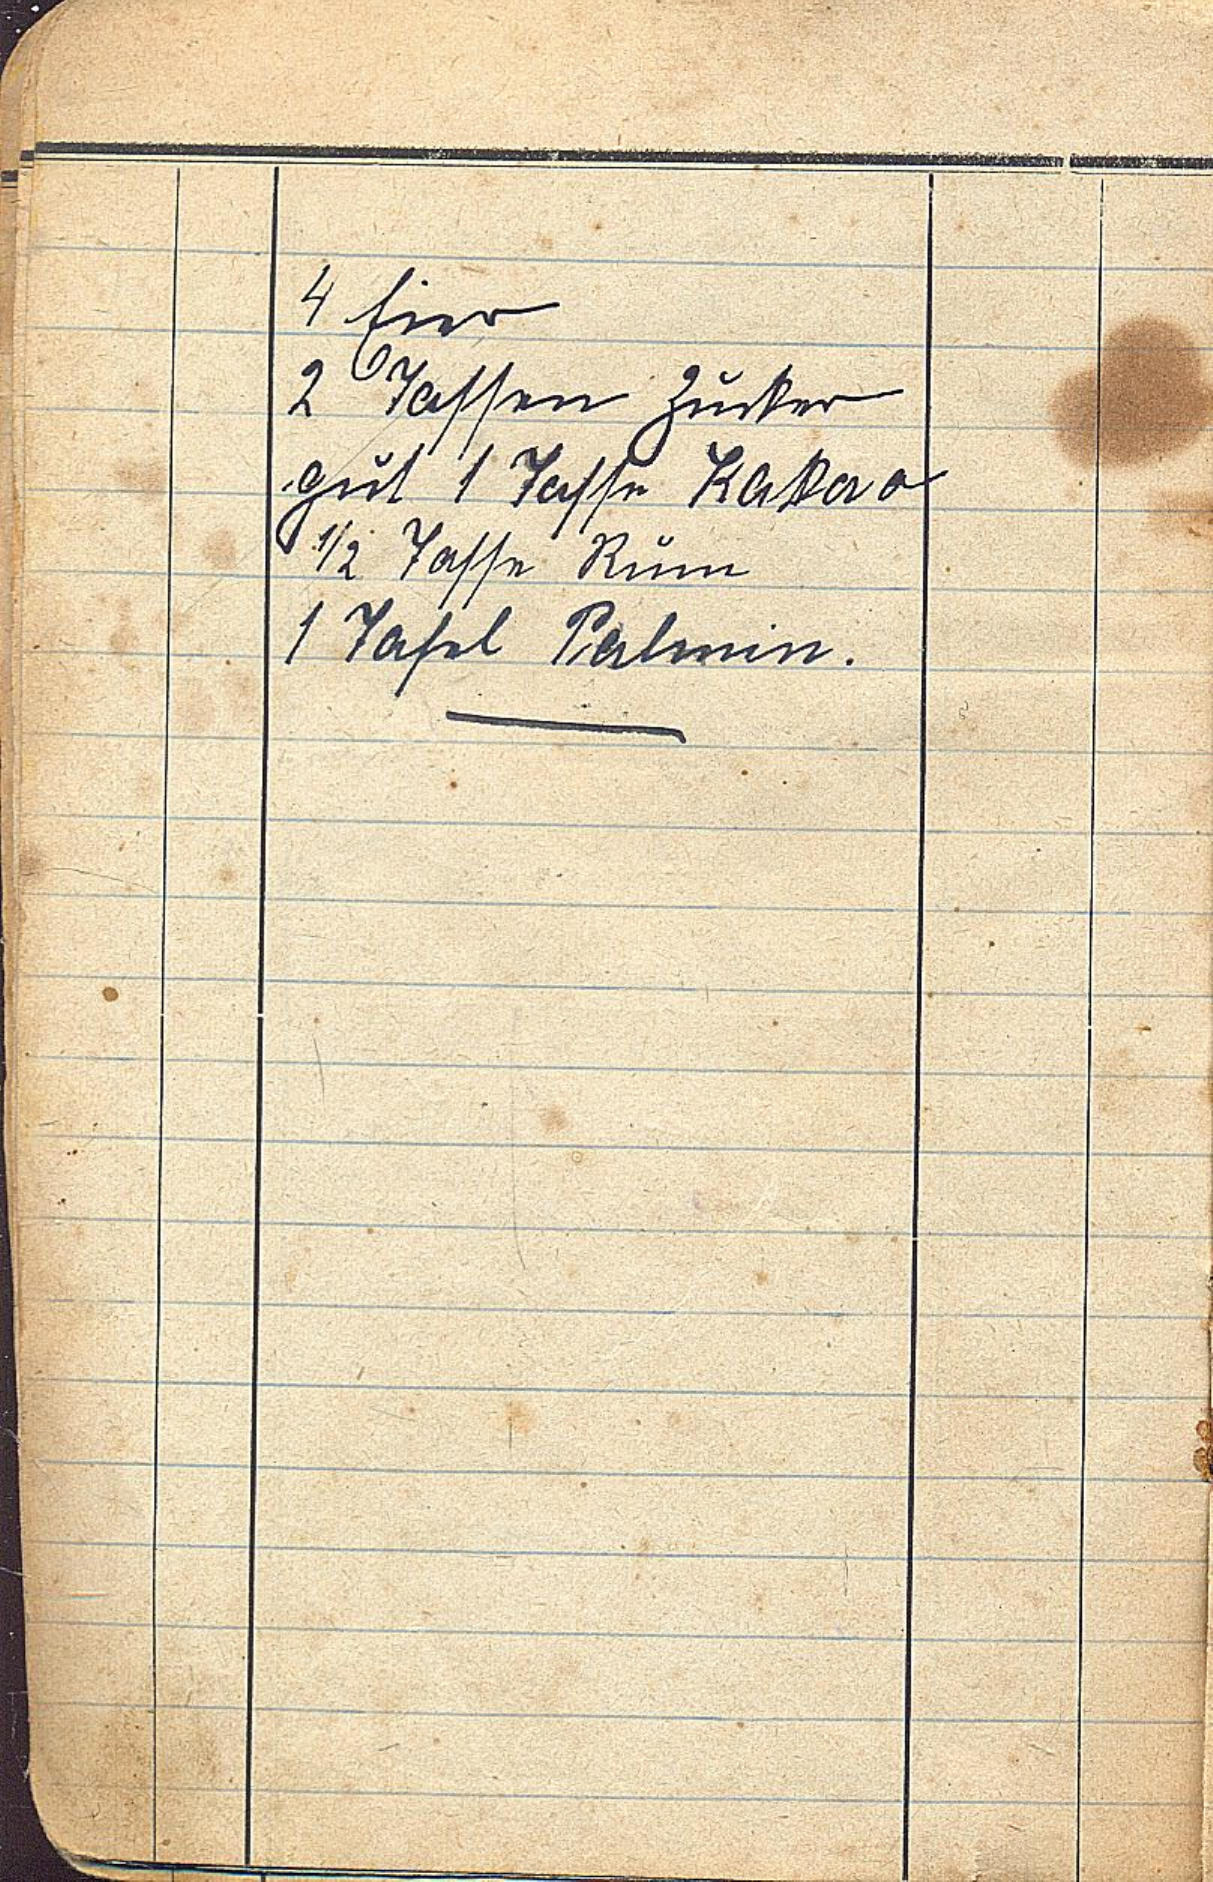 4 Eier
2 Tassen Zucker
gut 1 Tasse Kakao
1/2 Tasse Rum
1 Tafel Palmin.